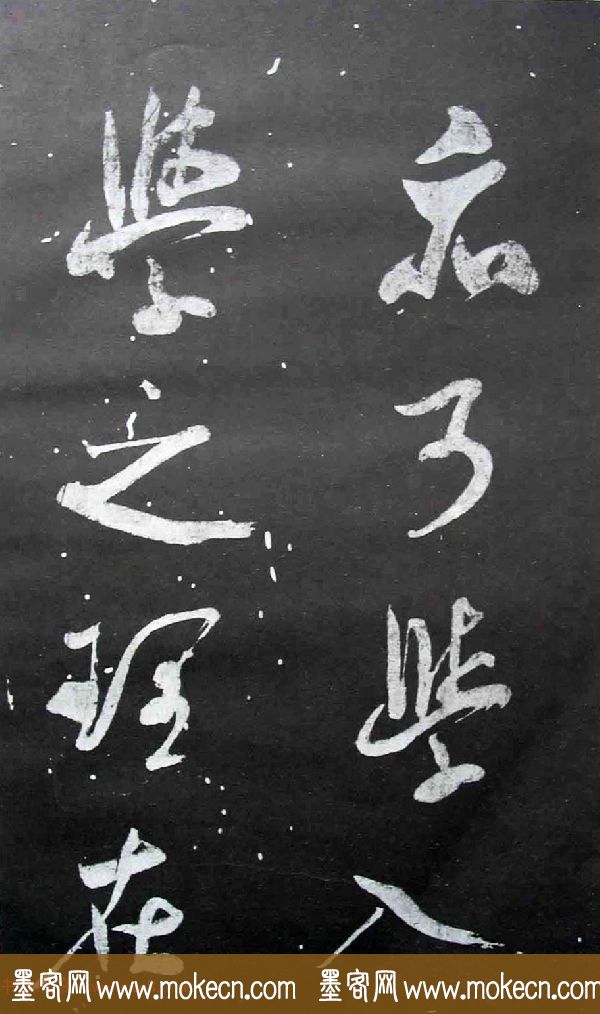 乃學入
學之理在
墨客网 www.mokecn.com 墨客网 www.mokecn.com